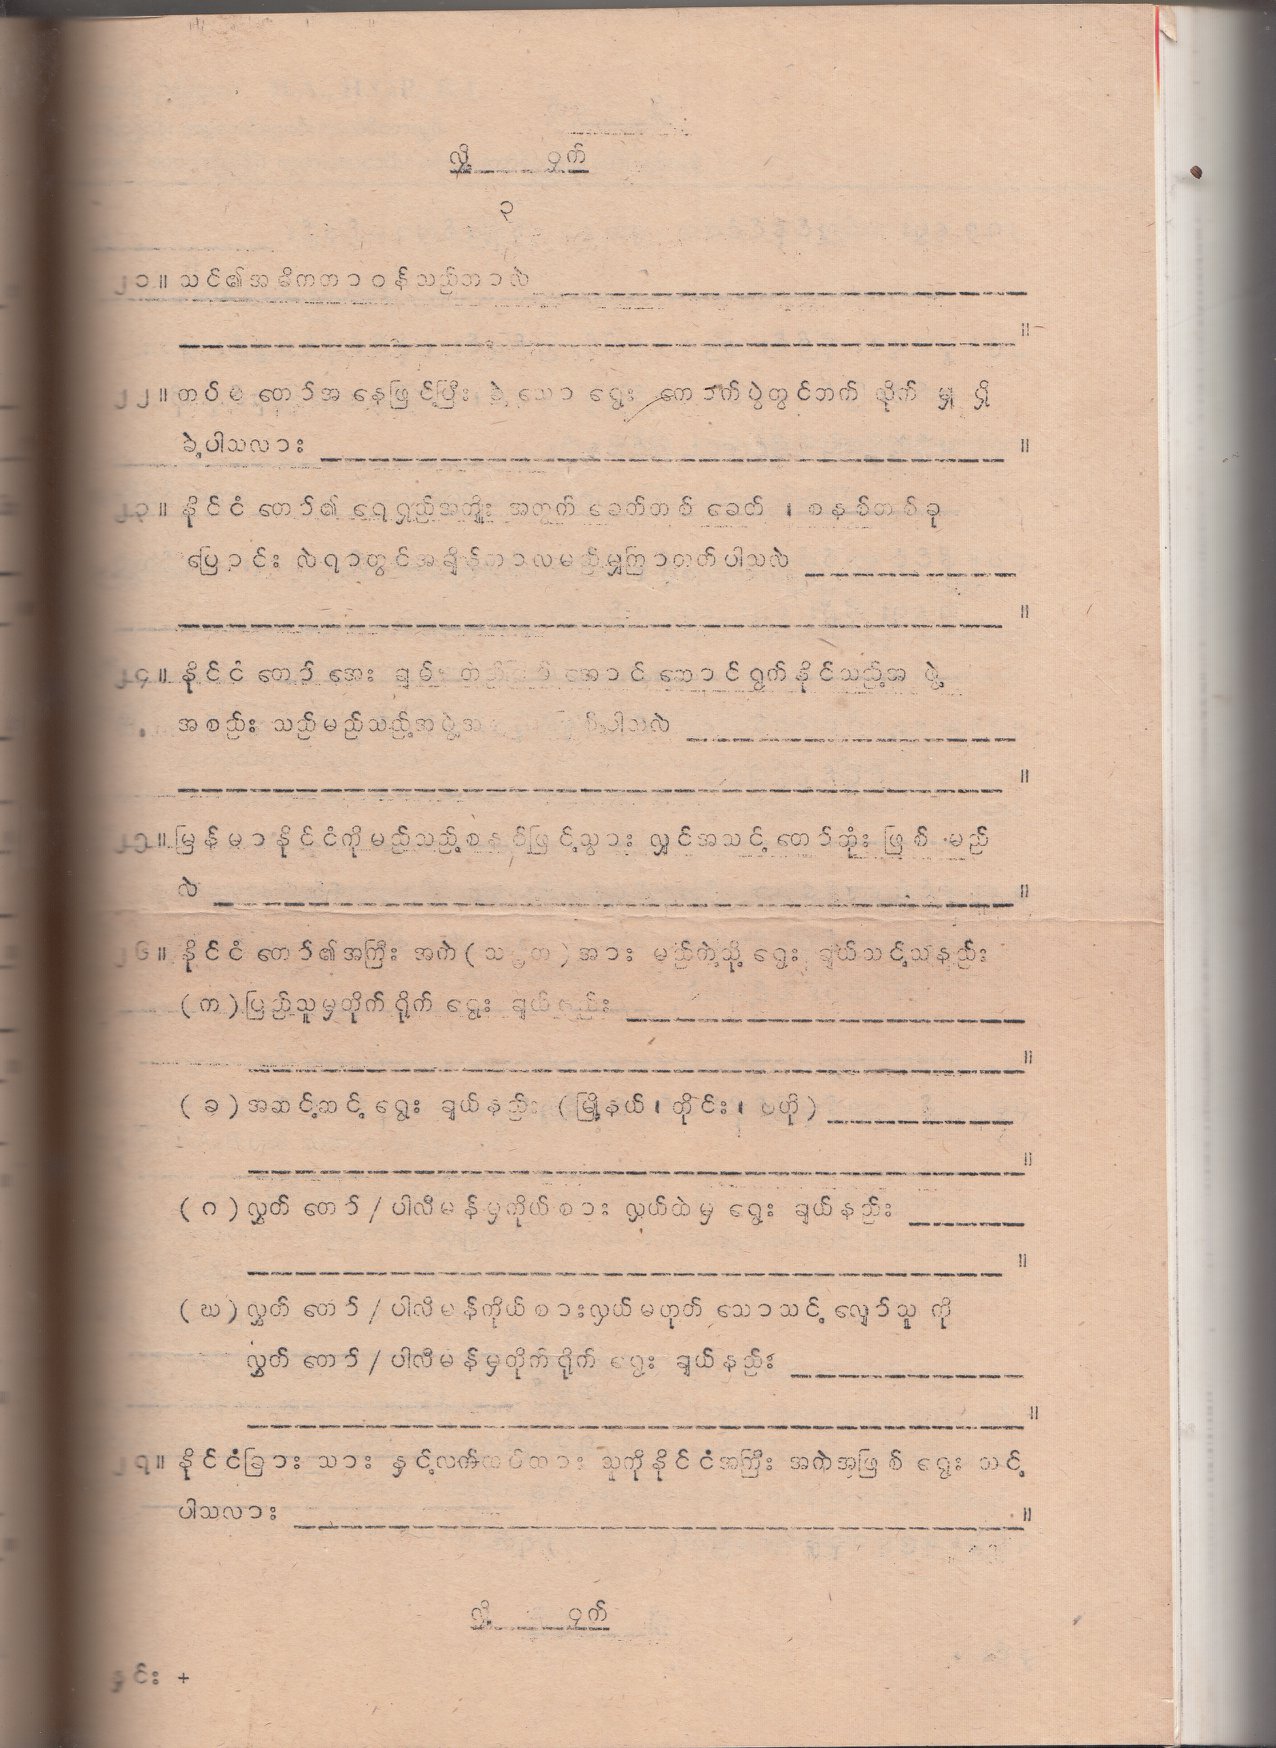 လျှို့ ဝှက်
၃
၂၁။ သင်၏အဓိကတာဝန်သည်ဘာလဲ
။
၂၂။ တပ်မတော်အနေဖြင့်ပြီးခဲ့သောရွေးကောက်ပွဲတွင်ဘက်လိုက်မှုရှိ
ခဲ့ပါသလား ။
၂၃။ နိုင်ငံတော်၏ရေရှည်အကျိုးအတွက်ခေတ်တစ်ခေတ်၊ စနစ်တစ်ခု
ပြောင်းလဲရာတွင်အချိန်ကာလမည်မျှကြာတတ်ပါသလဲ
။
၂၄။ နိုင်ငံတော်အေးချမ်း အောင်ဆောင်ရွက်နိုင်သည့်အဖွဲ့
အစည်းသည်မည်သည့်အဖွဲ့ ပါသလဲ
။
၂၅။ မြန်မာနိုင်ငံကိုမည်သည့်စနစ်ဖြင့်သွားလျှင်အသင့်တော်ဆုံးဖြစ်မည်
လဲ ။
၂၆။ နိုင်ငံတော်၏အကြီးအကဲ(သမ္မတ)အား မည်ကဲ့သို့ရွေးချယ်သင့်သနည်း
(က) ပြည်သူမှတိုက်ရိုက်ရွေးချယ်နည်း
။
(ခ) အဆင့်ဆင့်ရွေးချယ်နည်း (မြို့နယ်၊ တိုင်း၊ ဗဟို)
။
(ဂ) လွှတ်တော်/ပါလီမန်မှကိုယ်စားလှယ်ထဲမှရွေးချယ်နည်း
။
(ဃ) လွှတ်တော်/ပါလီမန်ကိုယ်စားလှယ်မဟုတ်သောသင့်လျော်သူကို
လွှတ်တော်/ပါလီမန်မှတိုက်ရိုက်ရွေးချယ်နည်း
။
၂၇။ နိုင်ငံခြားသားနှင့်လက်ထပ်ထားသူကိုနိုင်ငံအကြီးအကဲအဖြစ်ရွေးသင့်
ပါသလား ။
လျှို့ ဝှက်
နှင်း +